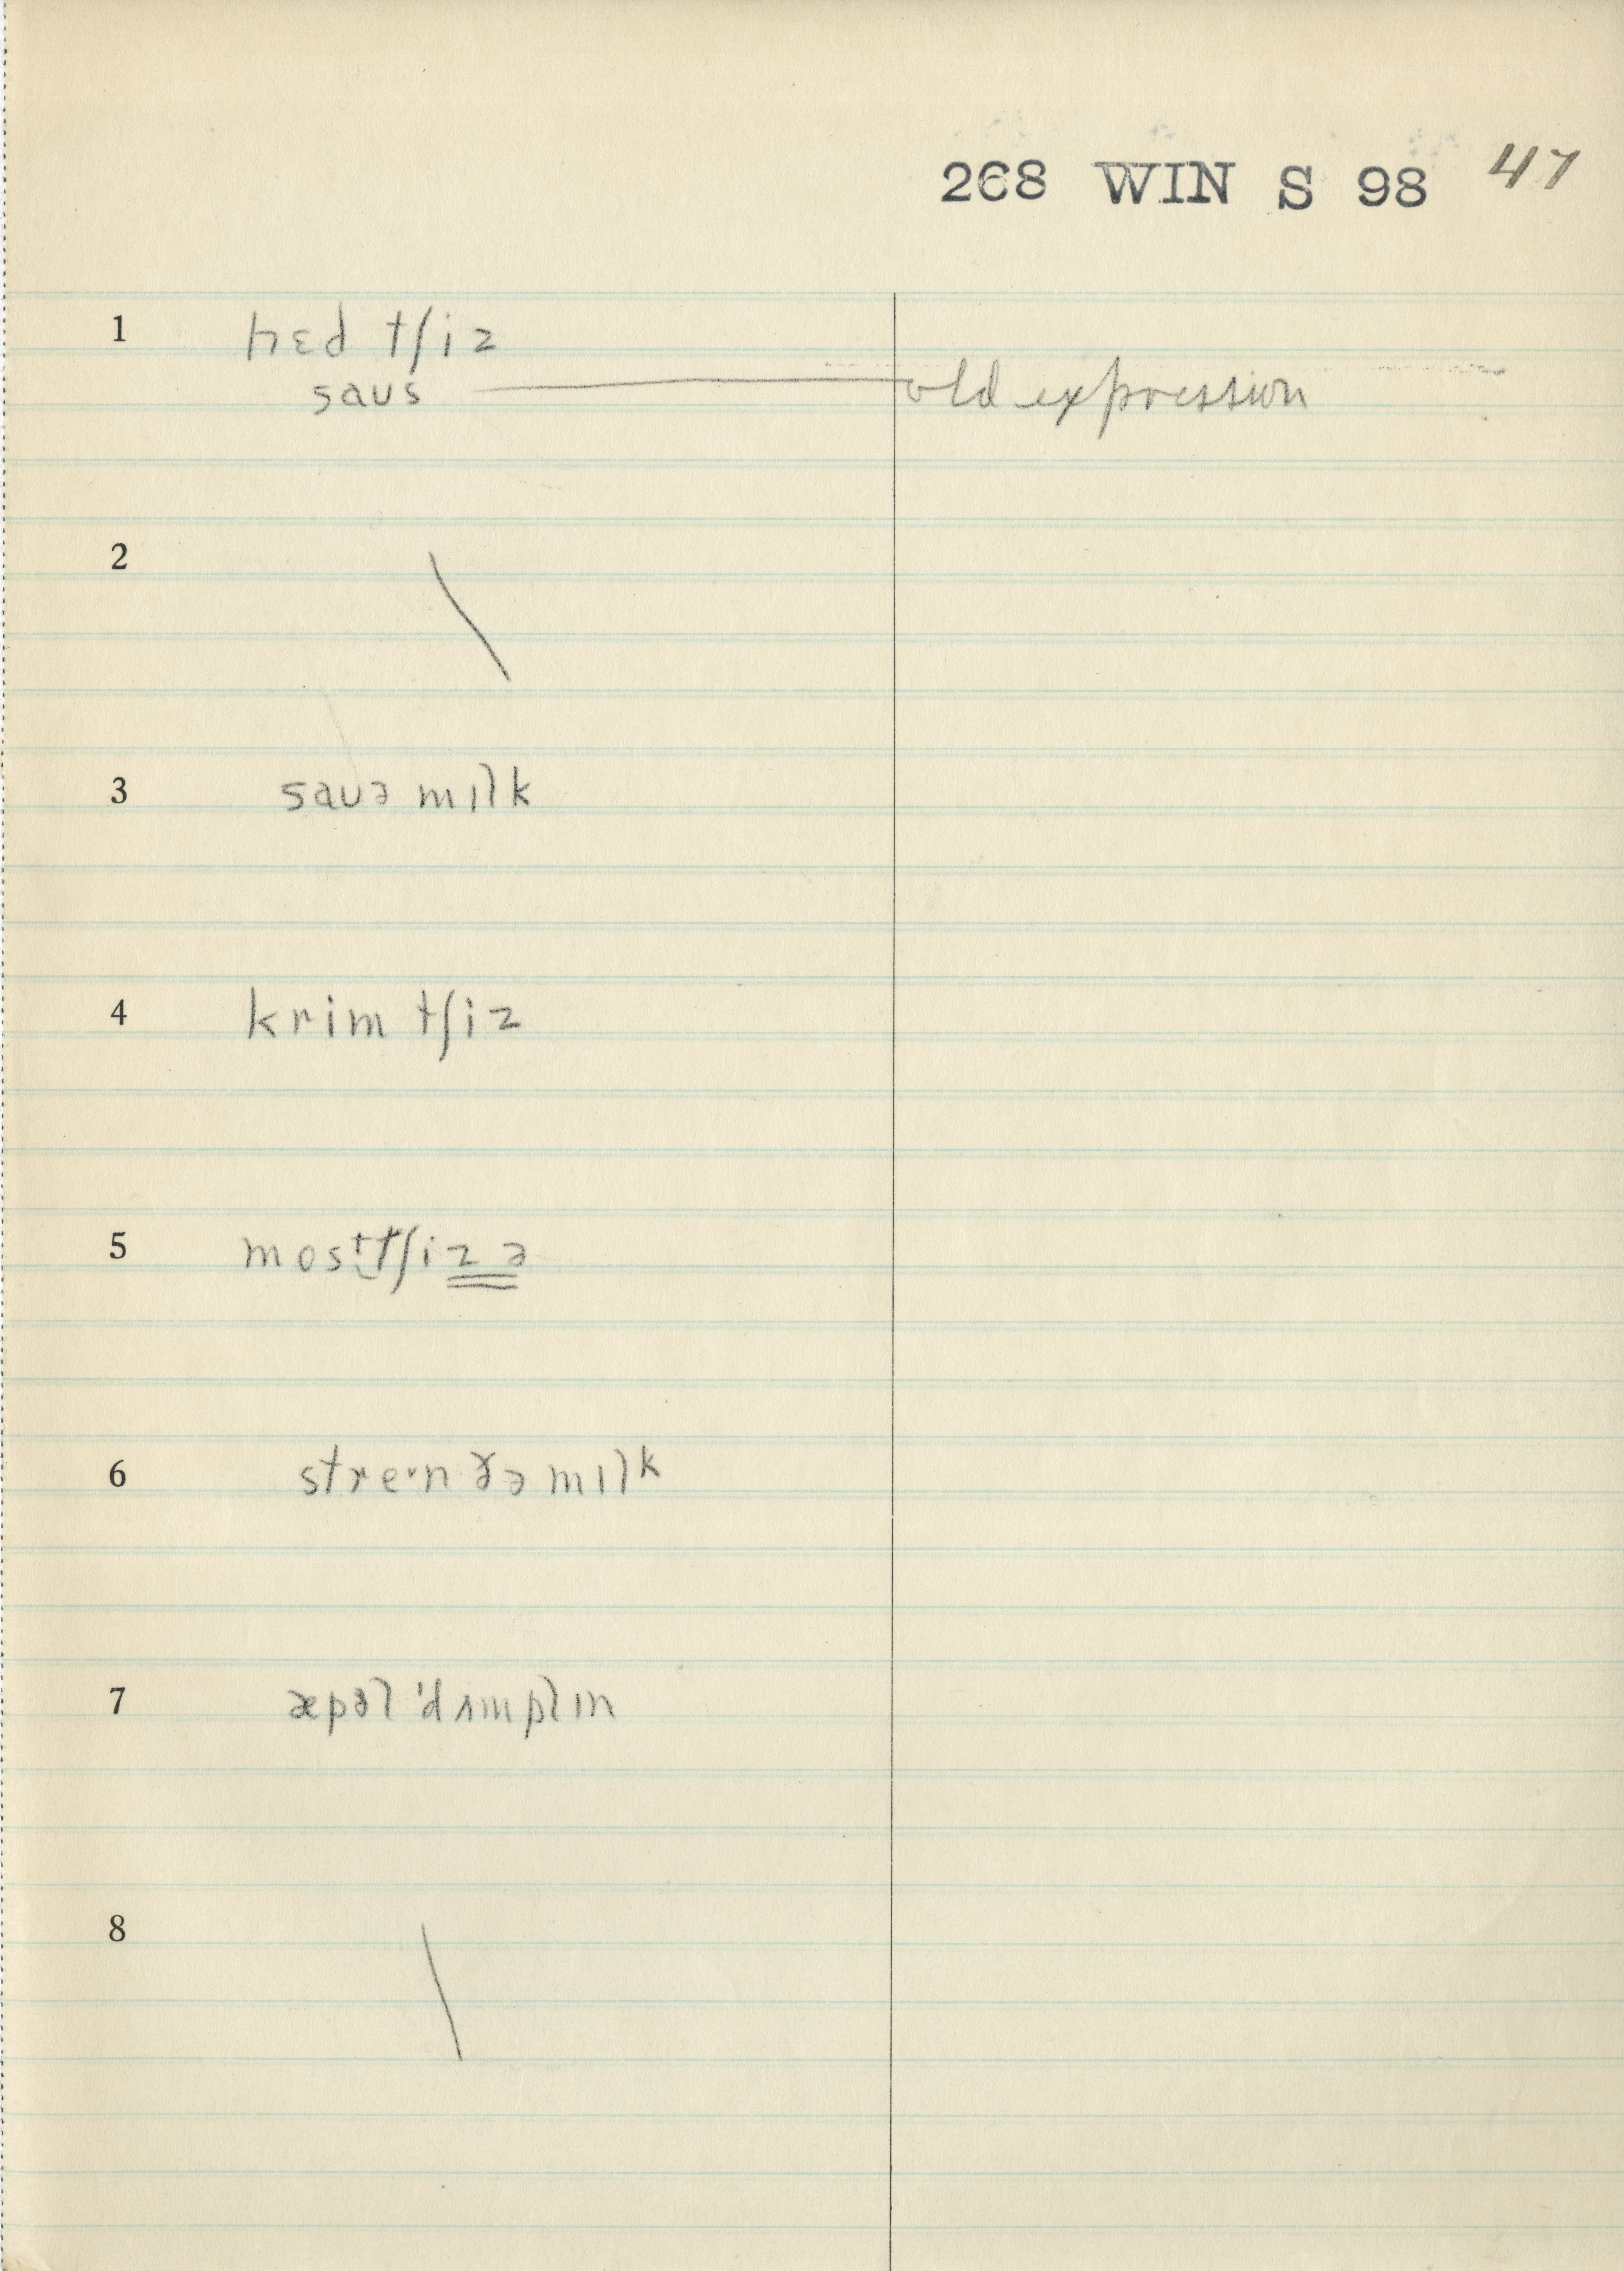 268 WIN S 98 47
1 hɛd tʃiz
saus old expression
2 \
3 sauə mɪlk
4 krim tʃiz
5 mostt͜ʃizə
6 streˑn ðə mɪlk
7 æpəl 'dʌmplɪn
8 \